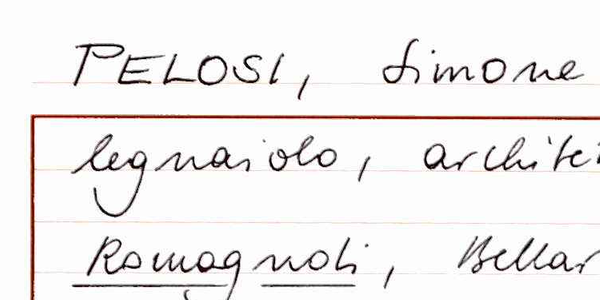 PELOSI, Simone
legnaiolo, archite
Romagnoli, Bellar